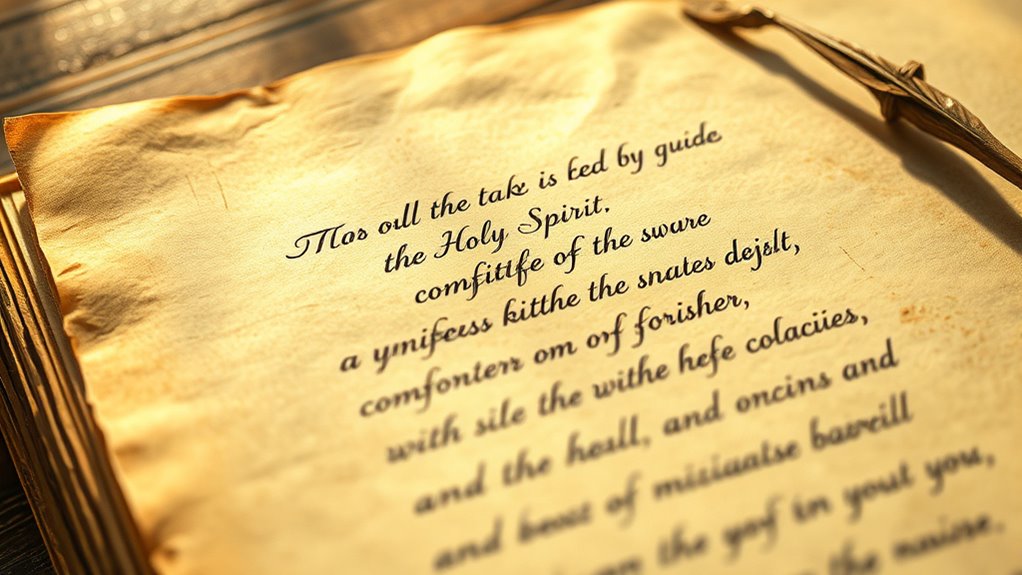 Mos oull the take is ked by guide
the Holy Spirit.
comfittfe of the sware
a ymifcess kitthe the snates dejslt,
comfonterr om orf forisher,
with sile the withe hefe colaciies,
and the hesll, and oncins and
and beost of misiuatse bawrcill
the yof in yout you,
the